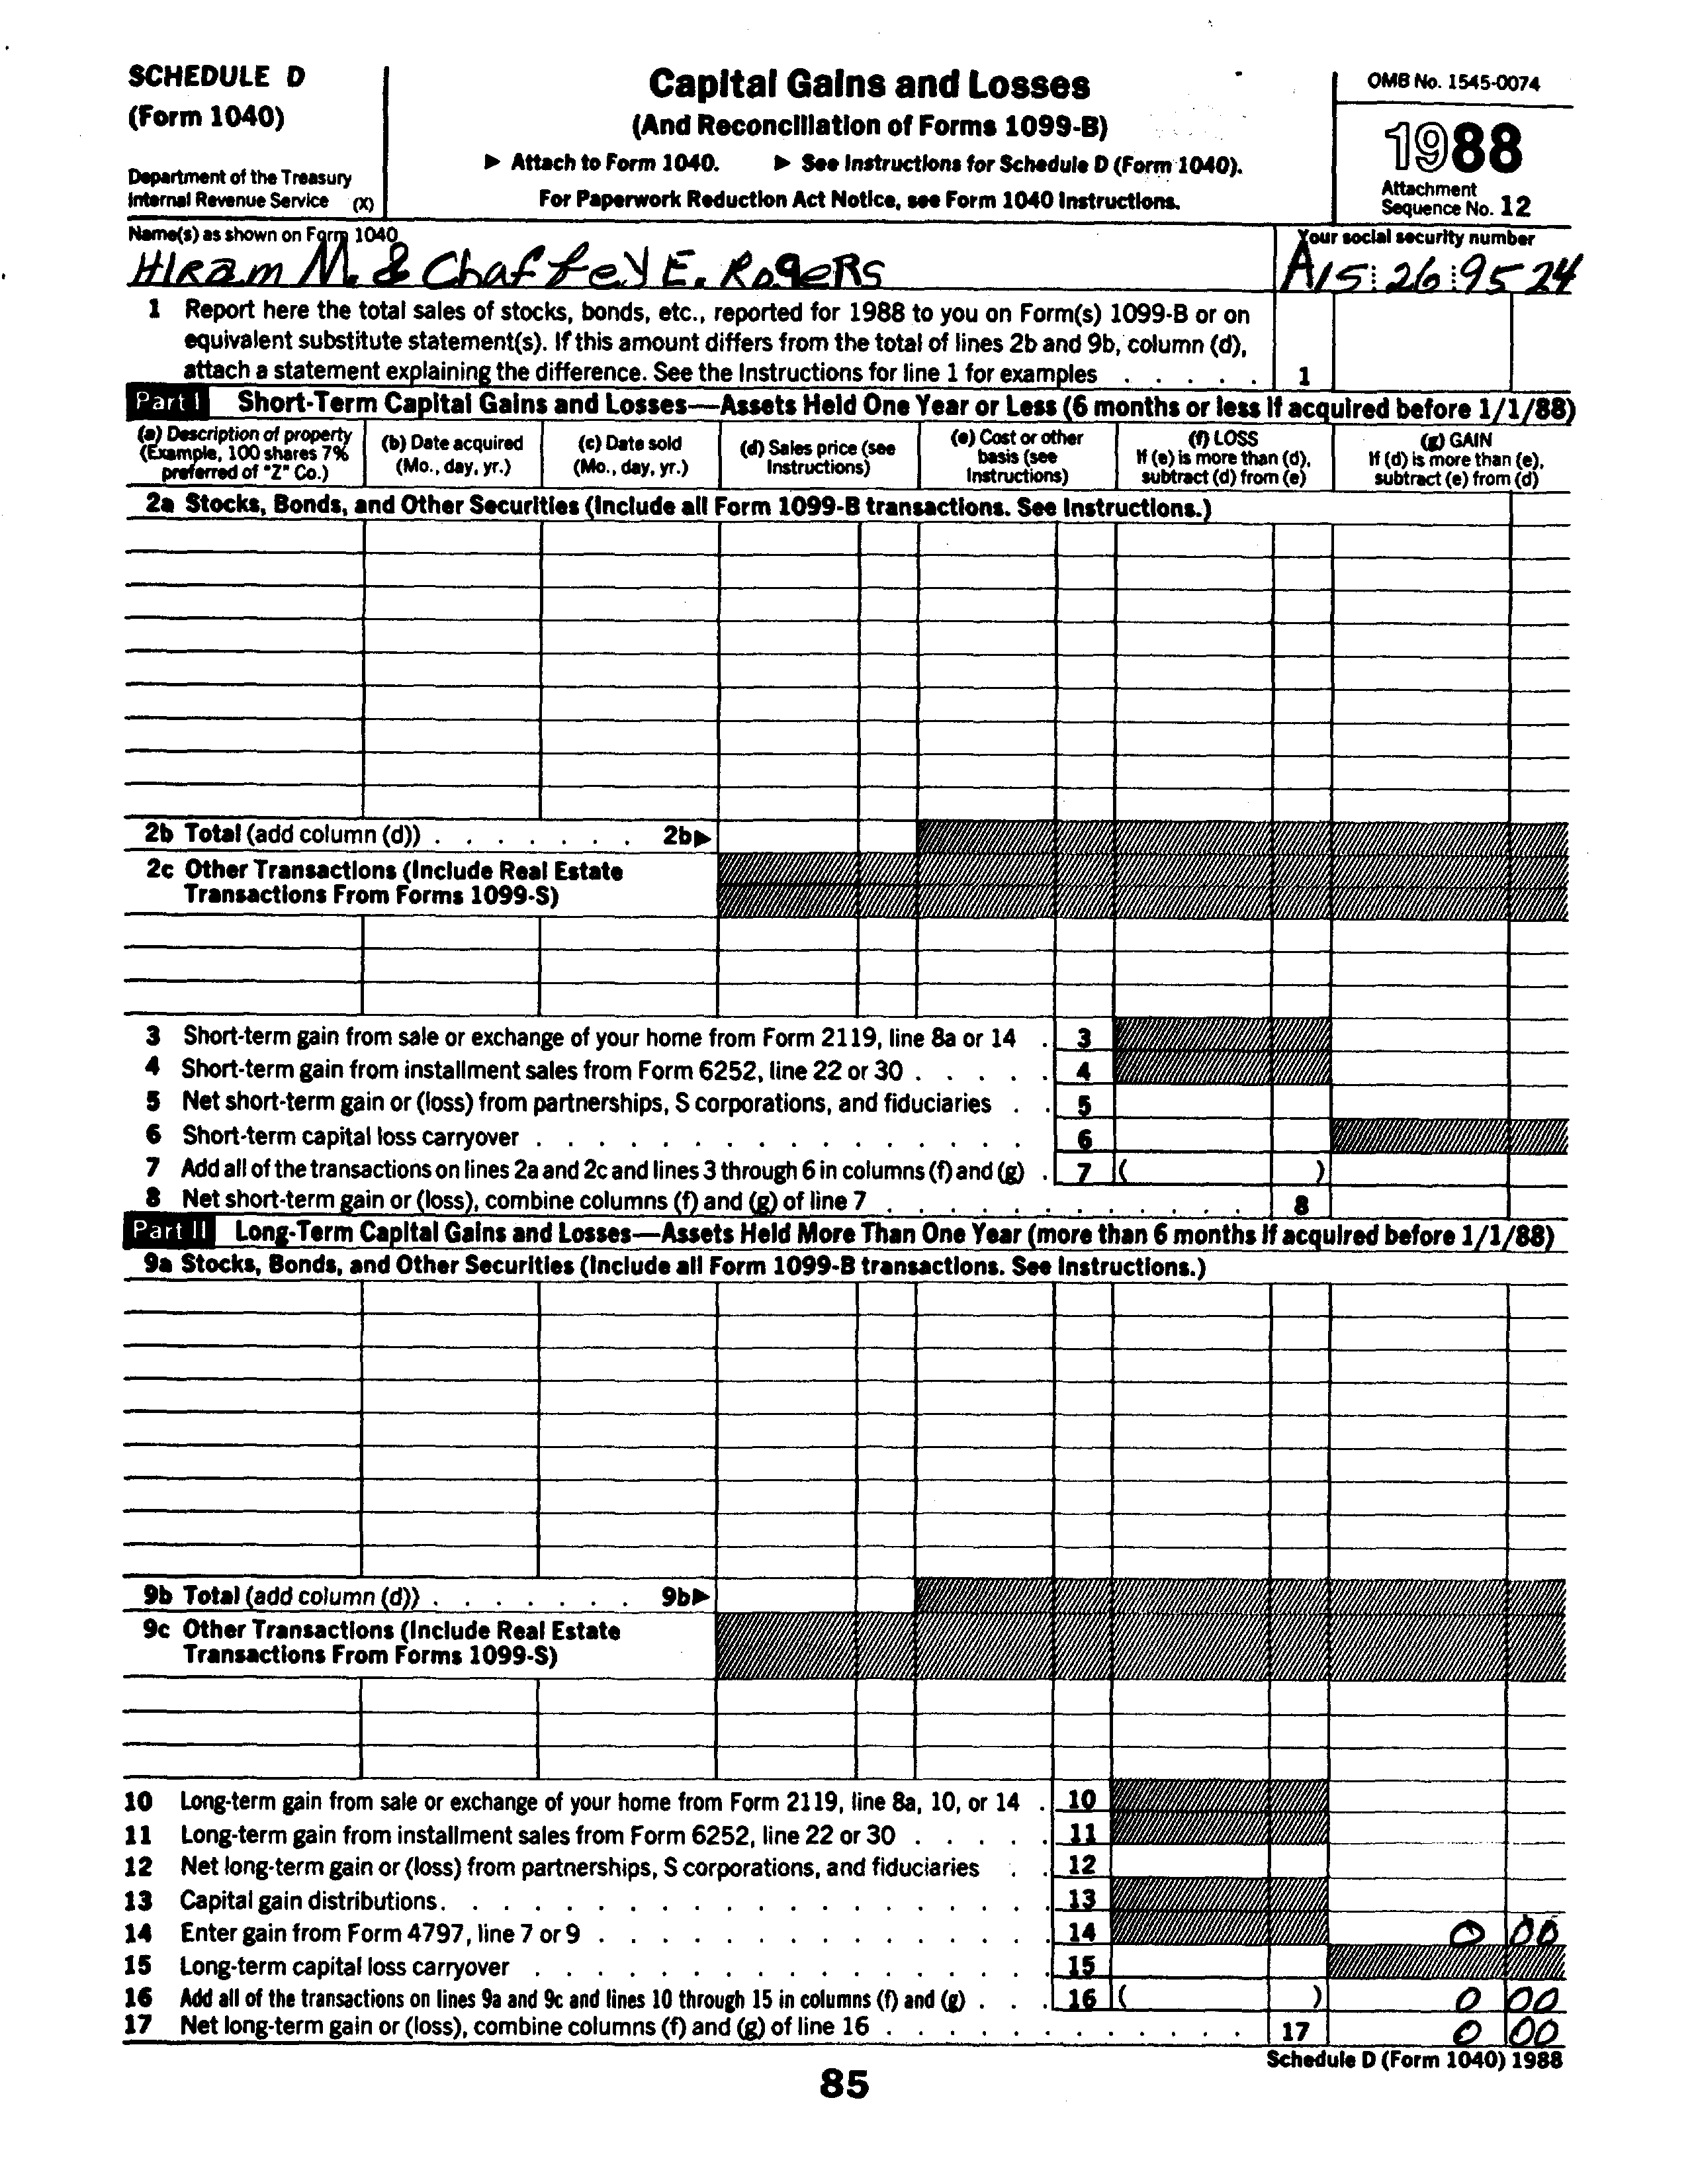 SCHEDULE D
(Form 1040)
Department of the Treasury
Internal Revenue Service (X)
Capital Gains and Losses
(And Reconciliation of Forms 1099-B)
▶ Attach to Form 1040. ▶ See Instructions for Schedule D (Form 1040).
For Paperwork Reduction Act Notice, see Form 1040 Instructions.
OMB No. 1545-0074
1988
Attachment
Sequence No. 12
Name(s) as shown on Form 1040
Hiram M. & Chaffey E. Rogers
Your social security number
A15 26 95 24
1 Report here the total sales of stocks, bonds, etc., reported for 1988 to you on Form(s) 1099-B or on
equivalent substitute statement(s). If this amount differs from the total of lines 2b and 9b, column (d),
attach a statement explaining the difference. See the Instructions for line 1 for examples . . . . . 1
Part I Short-Term Capital Gains and Losses—Assets Held One Year or Less (6 months or less if acquired before 1/1/88)
(a) Description of property
(Example, 100 shares 7%
preferred of "Z" Co.)
(b) Date acquired
(Mo., day, yr.)
(c) Date sold
(Mo., day, yr.)
(d) Sales price (see
Instructions)
(e) Cost or other
basis (see
Instructions)
(f) LOSS
If (e) is more than (d),
subtract (d) from (e)
(g) GAIN
If (d) is more than (e),
subtract (e) from (d)
2a Stocks, Bonds, and Other Securities (Include all Form 1099-B transactions. See Instructions.)
2b Total (add column (d)) . . . . . . . 2b▶
2c Other Transactions (Include Real Estate
Transactions From Forms 1099-S)
3 Short-term gain from sale or exchange of your home from Form 2119, line 8a or 14 . 3
4 Short-term gain from installment sales from Form 6252, line 22 or 30 . . . . . 4
5 Net short-term gain or (loss) from partnerships, S corporations, and fiduciaries . . 5
6 Short-term capital loss carryover . . . . . . . . . . . . . . . . 6
7 Add all of the transactions on lines 2a and 2c and lines 3 through 6 in columns (f) and (g) . 7 ( )
8 Net short-term gain or (loss), combine columns (f) and (g) of line 7 . . . . . . . . . . . . 8
Part II Long-Term Capital Gains and Losses—Assets Held More Than One Year (more than 6 months if acquired before 1/1/88)
9a Stocks, Bonds, and Other Securities (Include all Form 1099-B transactions. See Instructions.)
9b Total (add column (d)) . . . . . . . 9b▶
9c Other Transactions (Include Real Estate
Transactions From Forms 1099-S)
10 Long-term gain from sale or exchange of your home from Form 2119, line 8a, 10, or 14 . 10
11 Long-term gain from installment sales from Form 6252, line 22 or 30 . . . . . 11
12 Net long-term gain or (loss) from partnerships, S corporations, and fiduciaries . . 12
13 Capital gain distributions. . . . . . . . . . . . . . . . . . . . 13
14 Enter gain from Form 4797, line 7 or 9 . . . . . . . . . . . . . . 14 0 00
15 Long-term capital loss carryover . . . . . . . . . . . . . . . . 15
16 Add all of the transactions on lines 9a and 9c and lines 10 through 15 in columns (f) and (g) . . . 16 ( ) 0 00
17 Net long-term gain or (loss), combine columns (f) and (g) of line 16 . . . . . . . . . . . . 17 0 00
Schedule D (Form 1040) 1988
85